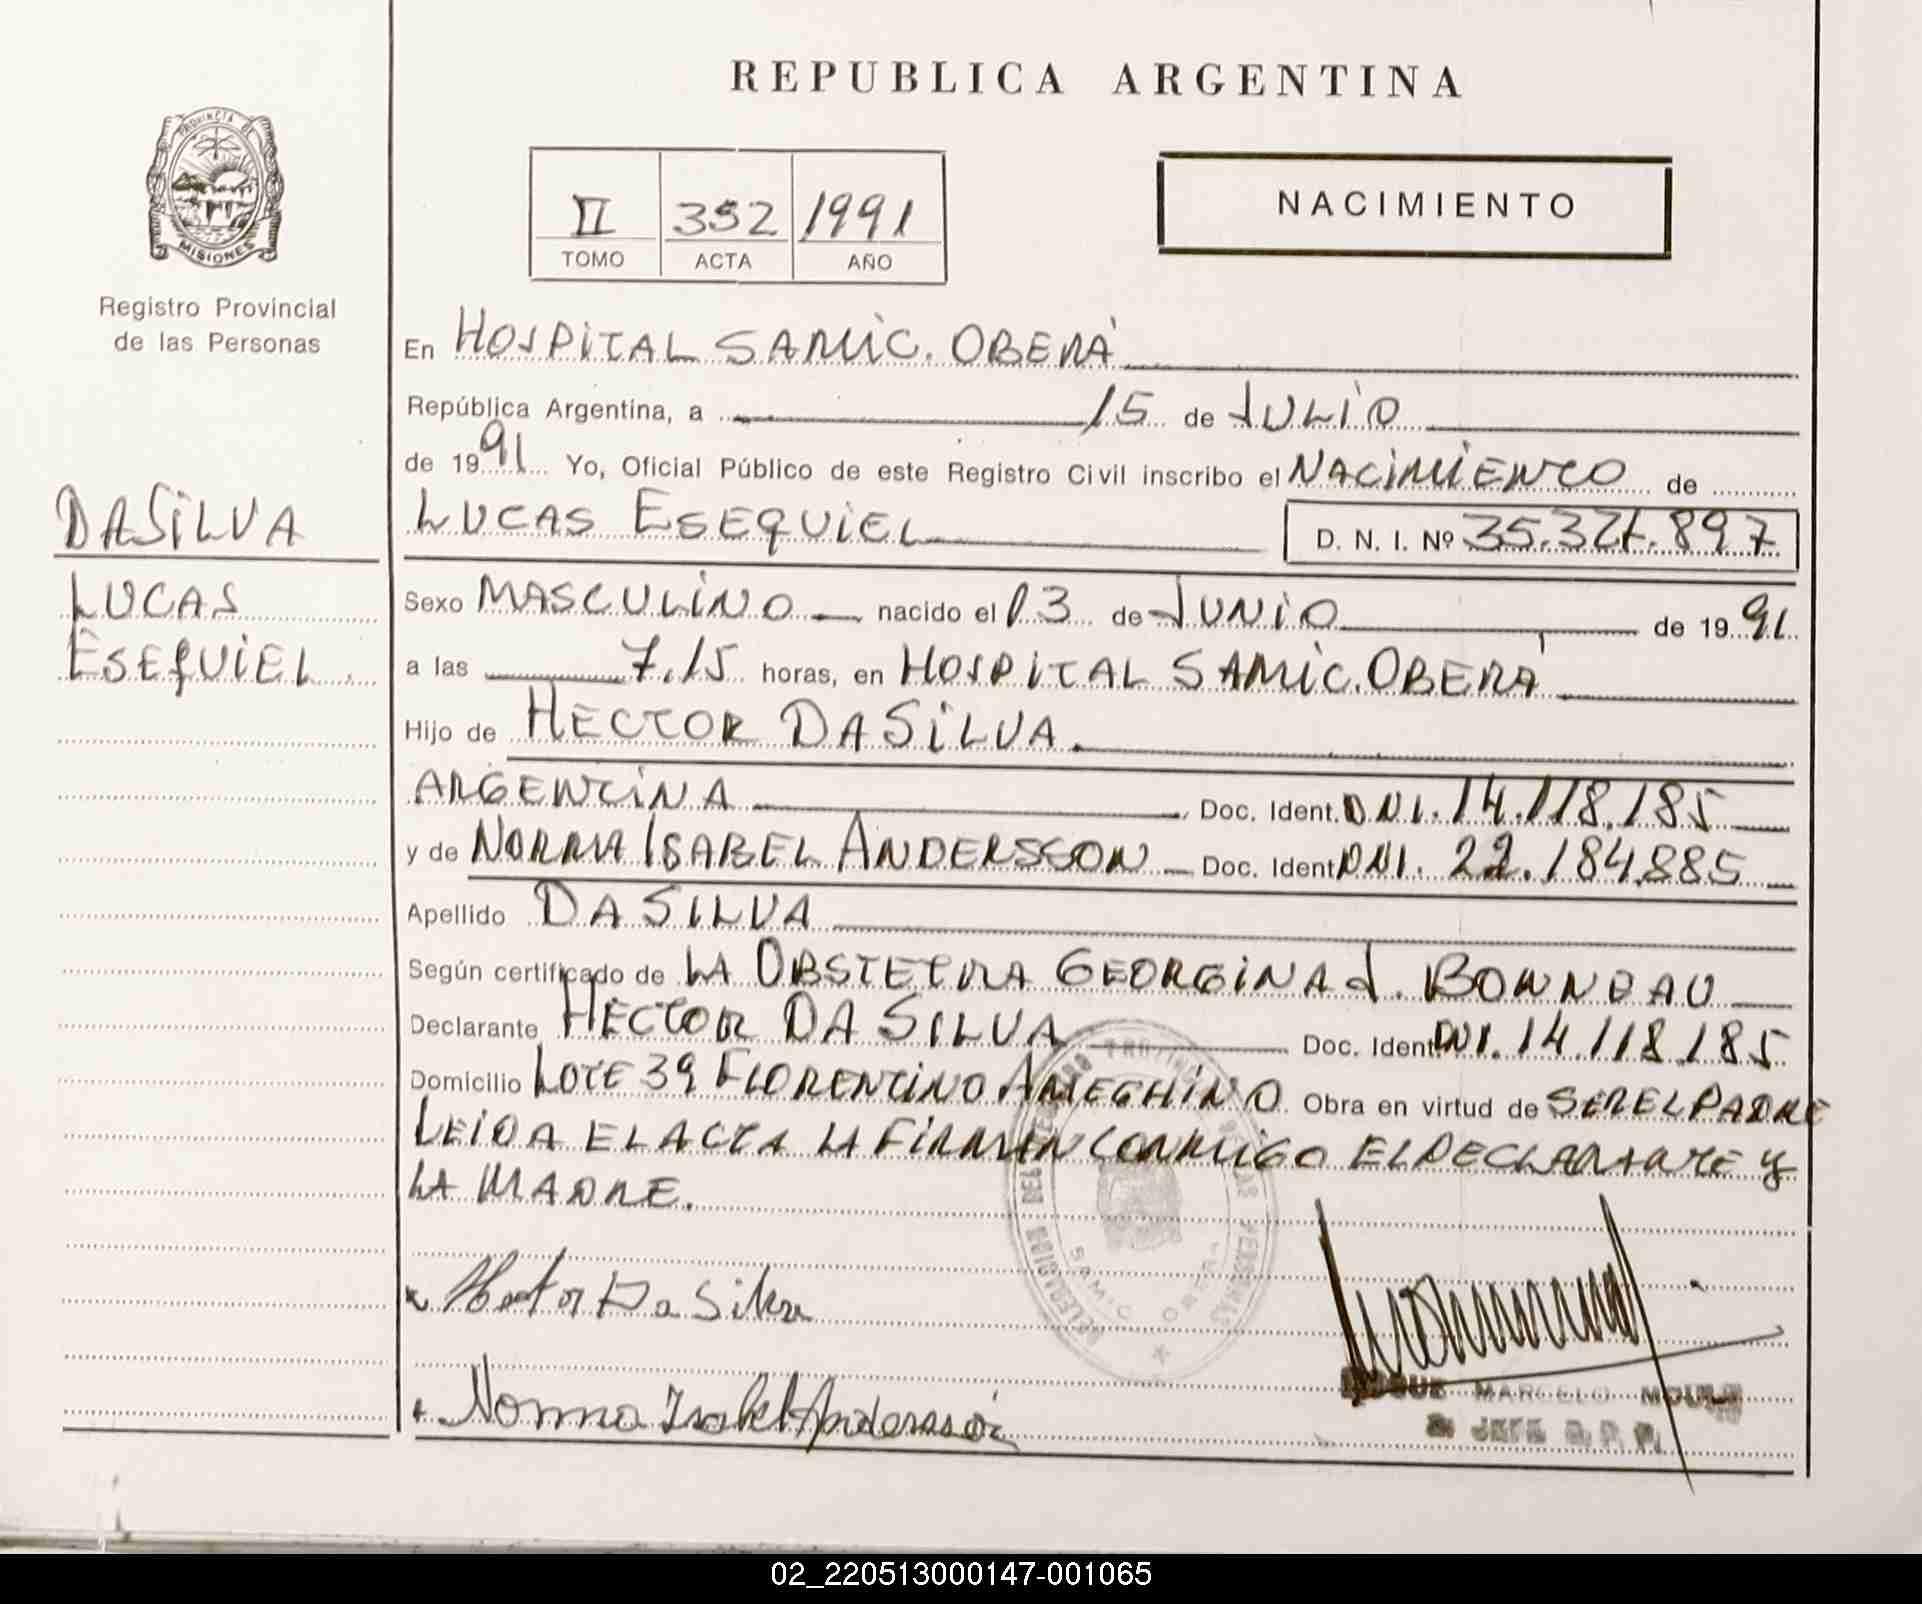 REPUBLICA ARGENTINA
PROVINCIA DE
MISIONES
Registro Provincial
de las Personas
II 352 1991
TOMO ACTA AÑO
NACIMIENTO
En HOSPITAL SAMIC. OBERÁ
República Argentina, a 15 de JULIO
de 1991 Yo, Oficial Público de este Registro Civil inscribo el NACIMIENTO de
DASILVA
LUCAS
ESEQUIEL
LUCAS ESEQUIEL D. N. I. Nº 35.327.897
Sexo MASCULINO nacido el 13 de JUNIO de 1991
a las 7.15 horas, en HOSPITAL SAMIC. OBERÁ
Hijo de HECTOR DASILVA
ARGENTINA Doc. Ident. DNI. 14.118.185
y de NORMA ISABEL ANDERSSON Doc. Ident DNI. 22.184.885
Apellido DA SILVA
Según certificado de LA OBSTETRA GEORGINA J.
Declarante HECTOR DA SILVA Doc. Ident DNI. 14.118.185
Domicilio LOTE 39 FLORENTINO AMEGHINO Obra en virtud de SER EL PADRE
LEIDA EL ACTA LA FIRMAN CONMIGO EL DECLARANTE y
LA MADRE.
Hector Da Silva
Norma Isabel Andersson
MARCELO
JEFE
SAMIC OBERA
02_220513000147-001065